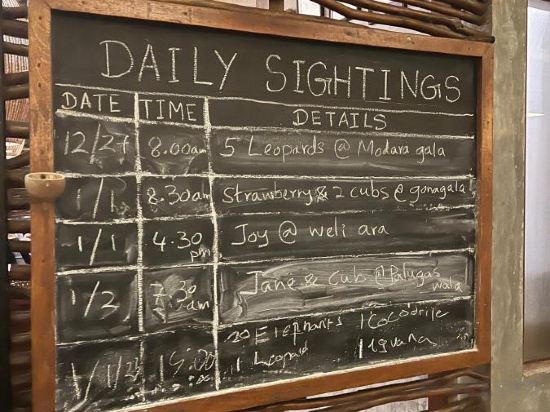 DAILY SIGHTINGS
DATE TIME DETAILS
12/27 8.00am 5 Leopards @ Modara gala
1/1 8.30am Strawberry & 2 cubs @ gonagala
1/1 4.30 pm Joy @ weli ara
1/3 7.30 am Jane & cub @ Palugas wala
20 Elephants 1 Cocodrile
1/1/23 1 Leopard 1 Iguana